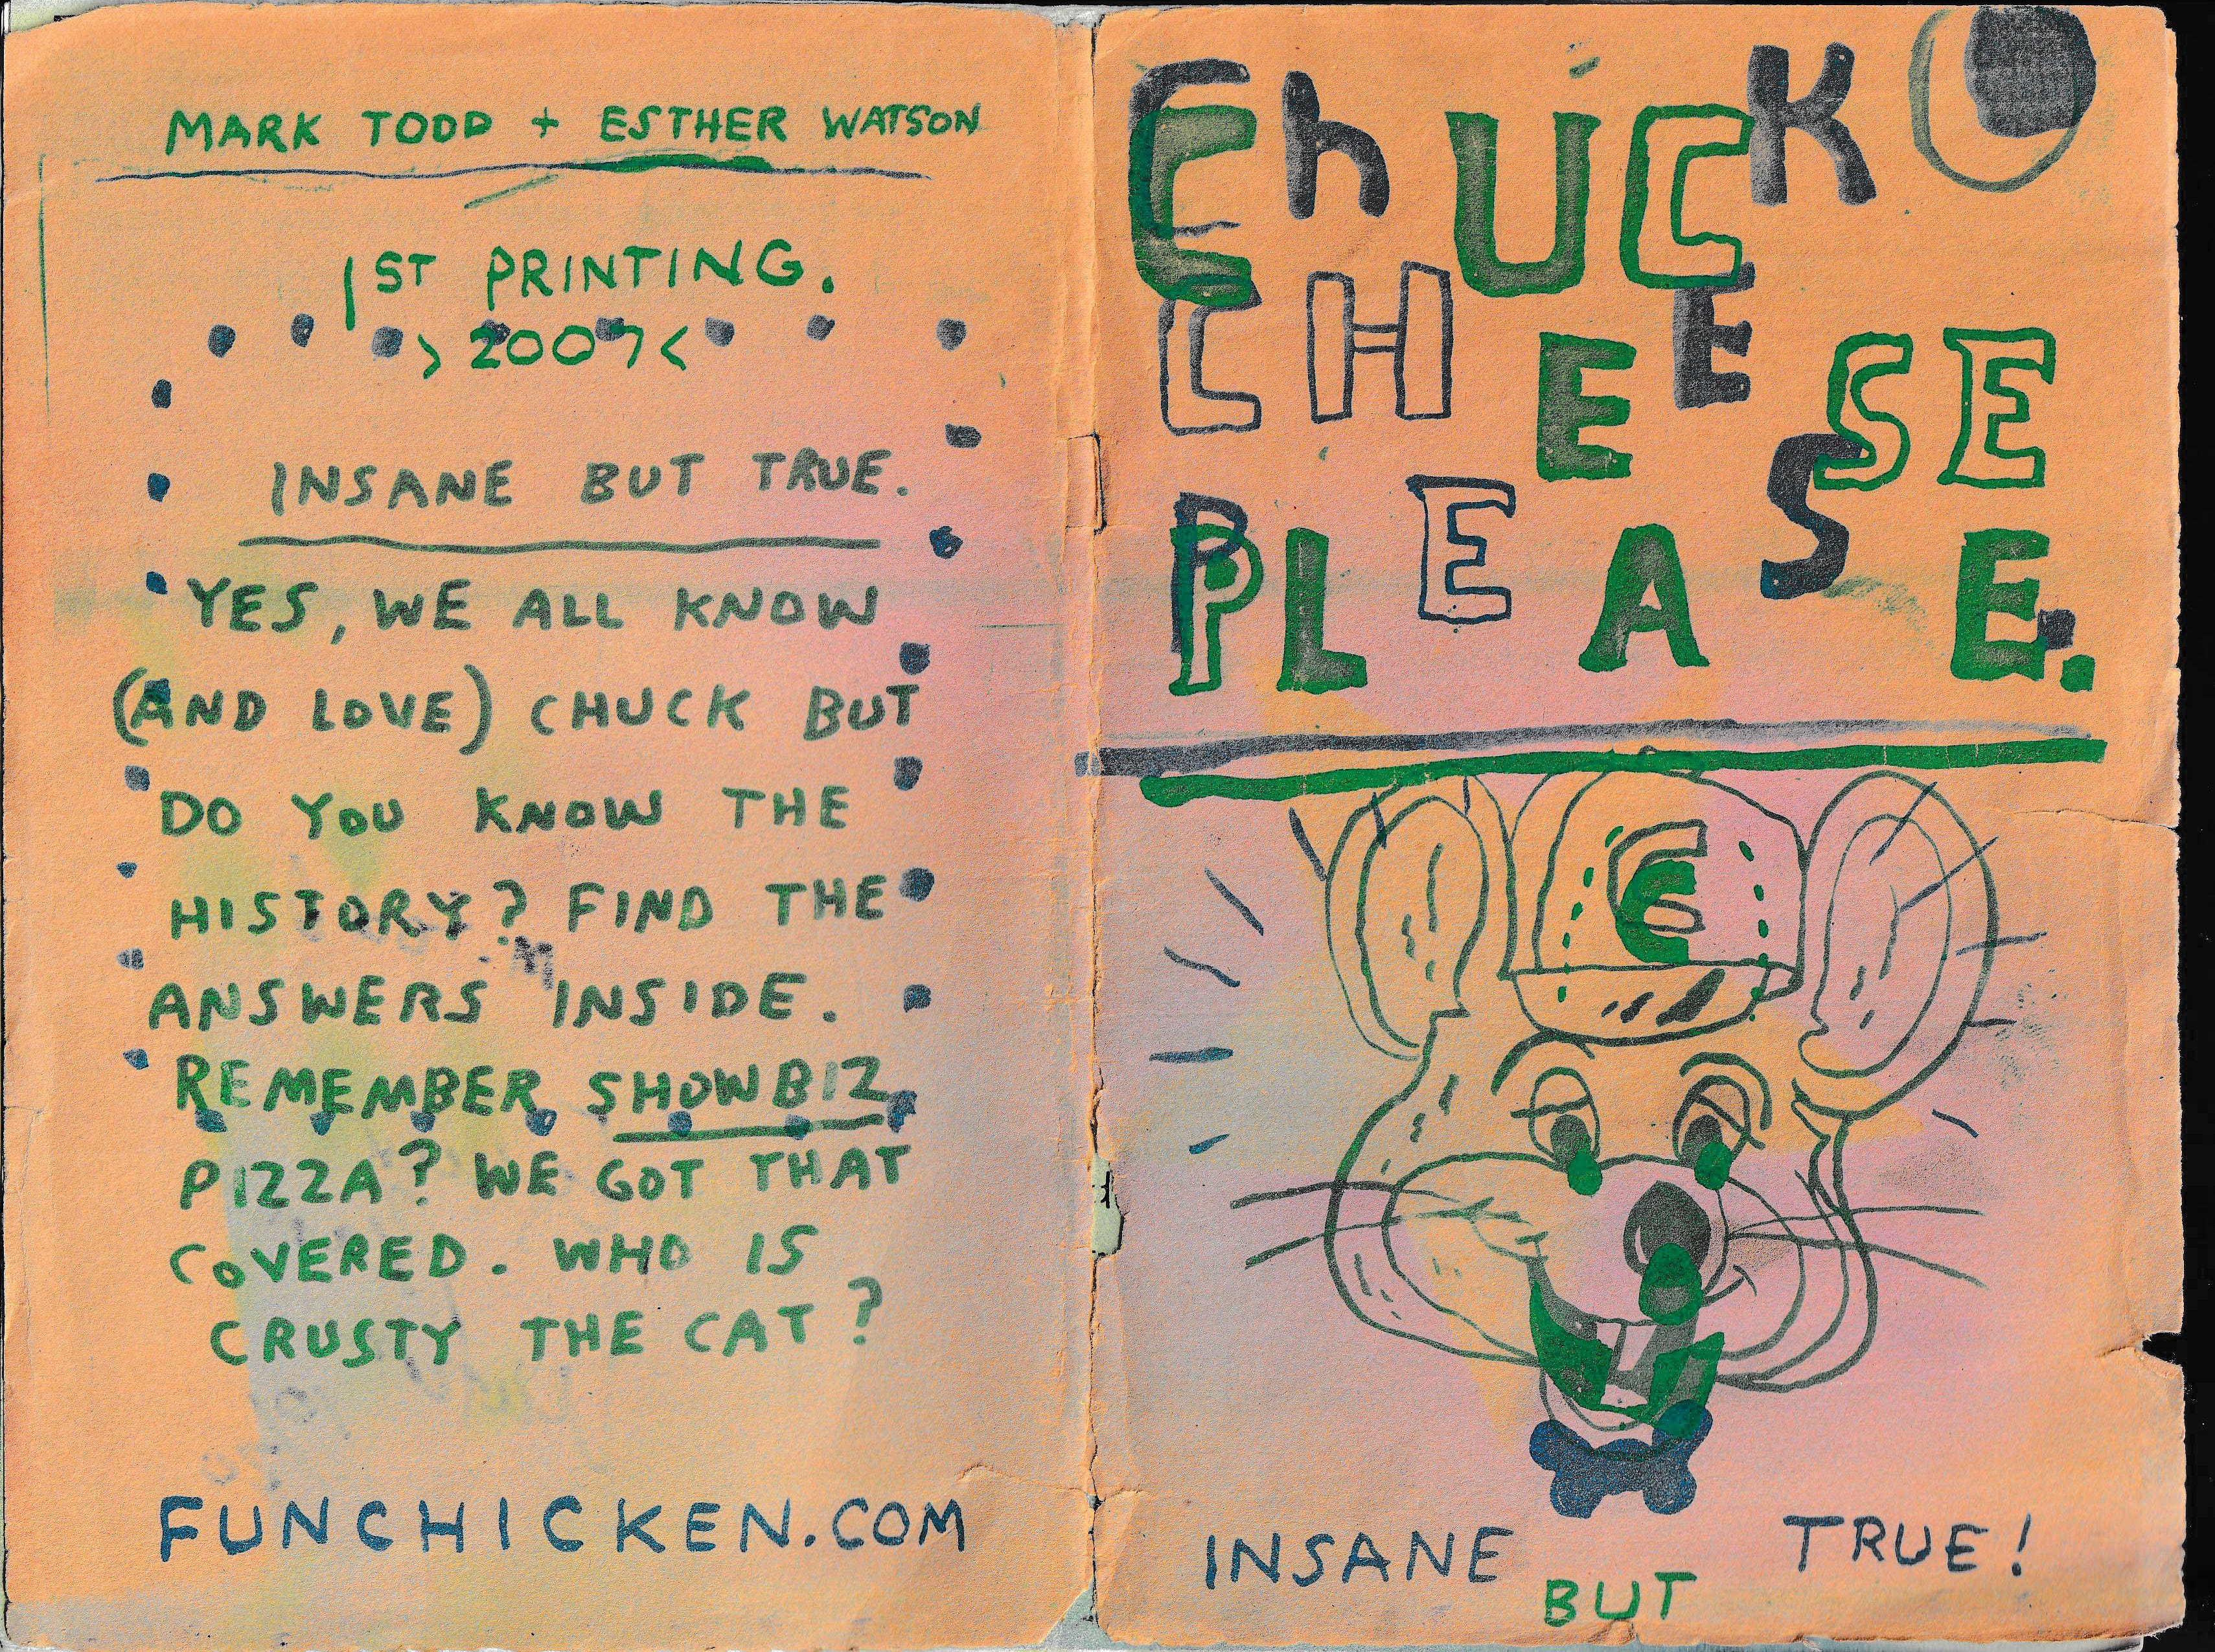 MARK TODD + ESTHER WATSON
1ST PRINTING.
>2007<
INSANE BUT TRUE.
YES, WE ALL KNOW
(AND LOVE) CHUCK BUT
DO YOU KNOW THE
HISTORY? FIND THE
ANSWERS INSIDE.
REMEMBER SHOWBIZ
PIZZA? WE GOT THAT
COVERED. WHO IS
CRUSTY THE CAT?
FUNCHICKEN.COM
ChUCK
CHEESE
PLEASE.
C
INSANE BUT TRUE!